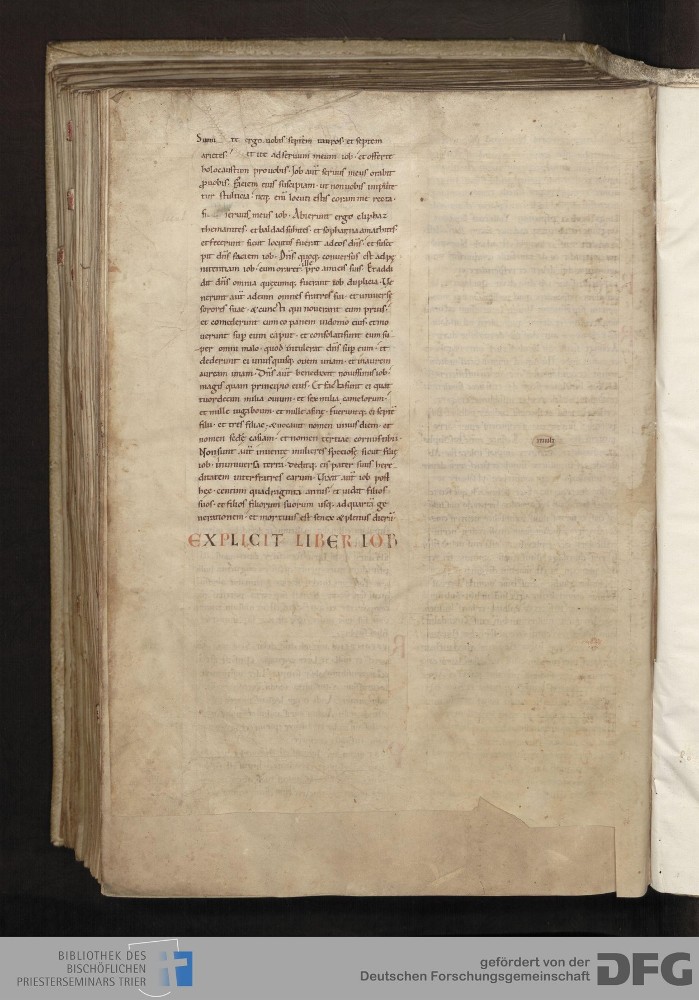 ergo uobis septem tauros · et septem
arietes · et ite ad seruum meum iob · et offerte
holocaustum pro uobis · Iob aut̄ seruus meus orabit
ꝓ uobis · Faciem eius suscipiam · ut non uobis inputet̄
tur stulticia · neq; enī locuti estis coram me recta ·
seruus meus iob · Abierunt ergo eliphaz
themanites · et baldad suhites · et sophar naamathites ·
et fecerunt sicut locutus fuerat ad eos dn̄s · et susce
pit dn̄s faciem iob · Dn̄s quoq; conuersus est ad pe
nitentiam iob · cum oraret ille pro amicis suis · Et addi
dit dn̄s omnia quęcumq; fuerant iob duplicia · Ve
nerunt aut̄ ad eum omnes fratres sui · et uniuersę
sorores suae · & cuncti qui nouerant eum prius ·
et comederunt cum eo panem in domo eius · et mo
uerunt sup̄ eum caput · et consolati sunt eum su
per omni malo · quod intulerat dn̄s sup̄ eum · et
dederunt ei unusquisq; ouem unam · et inaurem
auream unam · Dn̄s aut̄ benedixit nouissimis iob ·
magis quam principio eius · Et facta sunt ei quat
tuordecim milia ouium · et sex milia camelorum ·
et mille iuga boum · et mille asinę · Fueruntq; ei septē
filii · et tres filiae · & uocauit nomen unius diem · et
nomen sedę casiam · et nomen tertiae cornu stibii ·
Non sunt aut̄ inuentę mulieres speciosę sicut filię
iob · in uniuersa terra · deditq; eis pater suus here
ditatem inter fratres earum · Vixit aut̄ iob post
hęc · centum quadraginta annis · et uidit filios
suos · et filios filiorum suorum usq; ad quartā ge
nerationem · et mortuus est senex & plenus dierū ·
EXPLICIT LIBER IOB
BIBLIOTHEK DES
BISCHÖFLICHEN
PRIESTERSEMINARS TRIER
gefördert von der
Deutschen Forschungsgemeinschaft
DFG